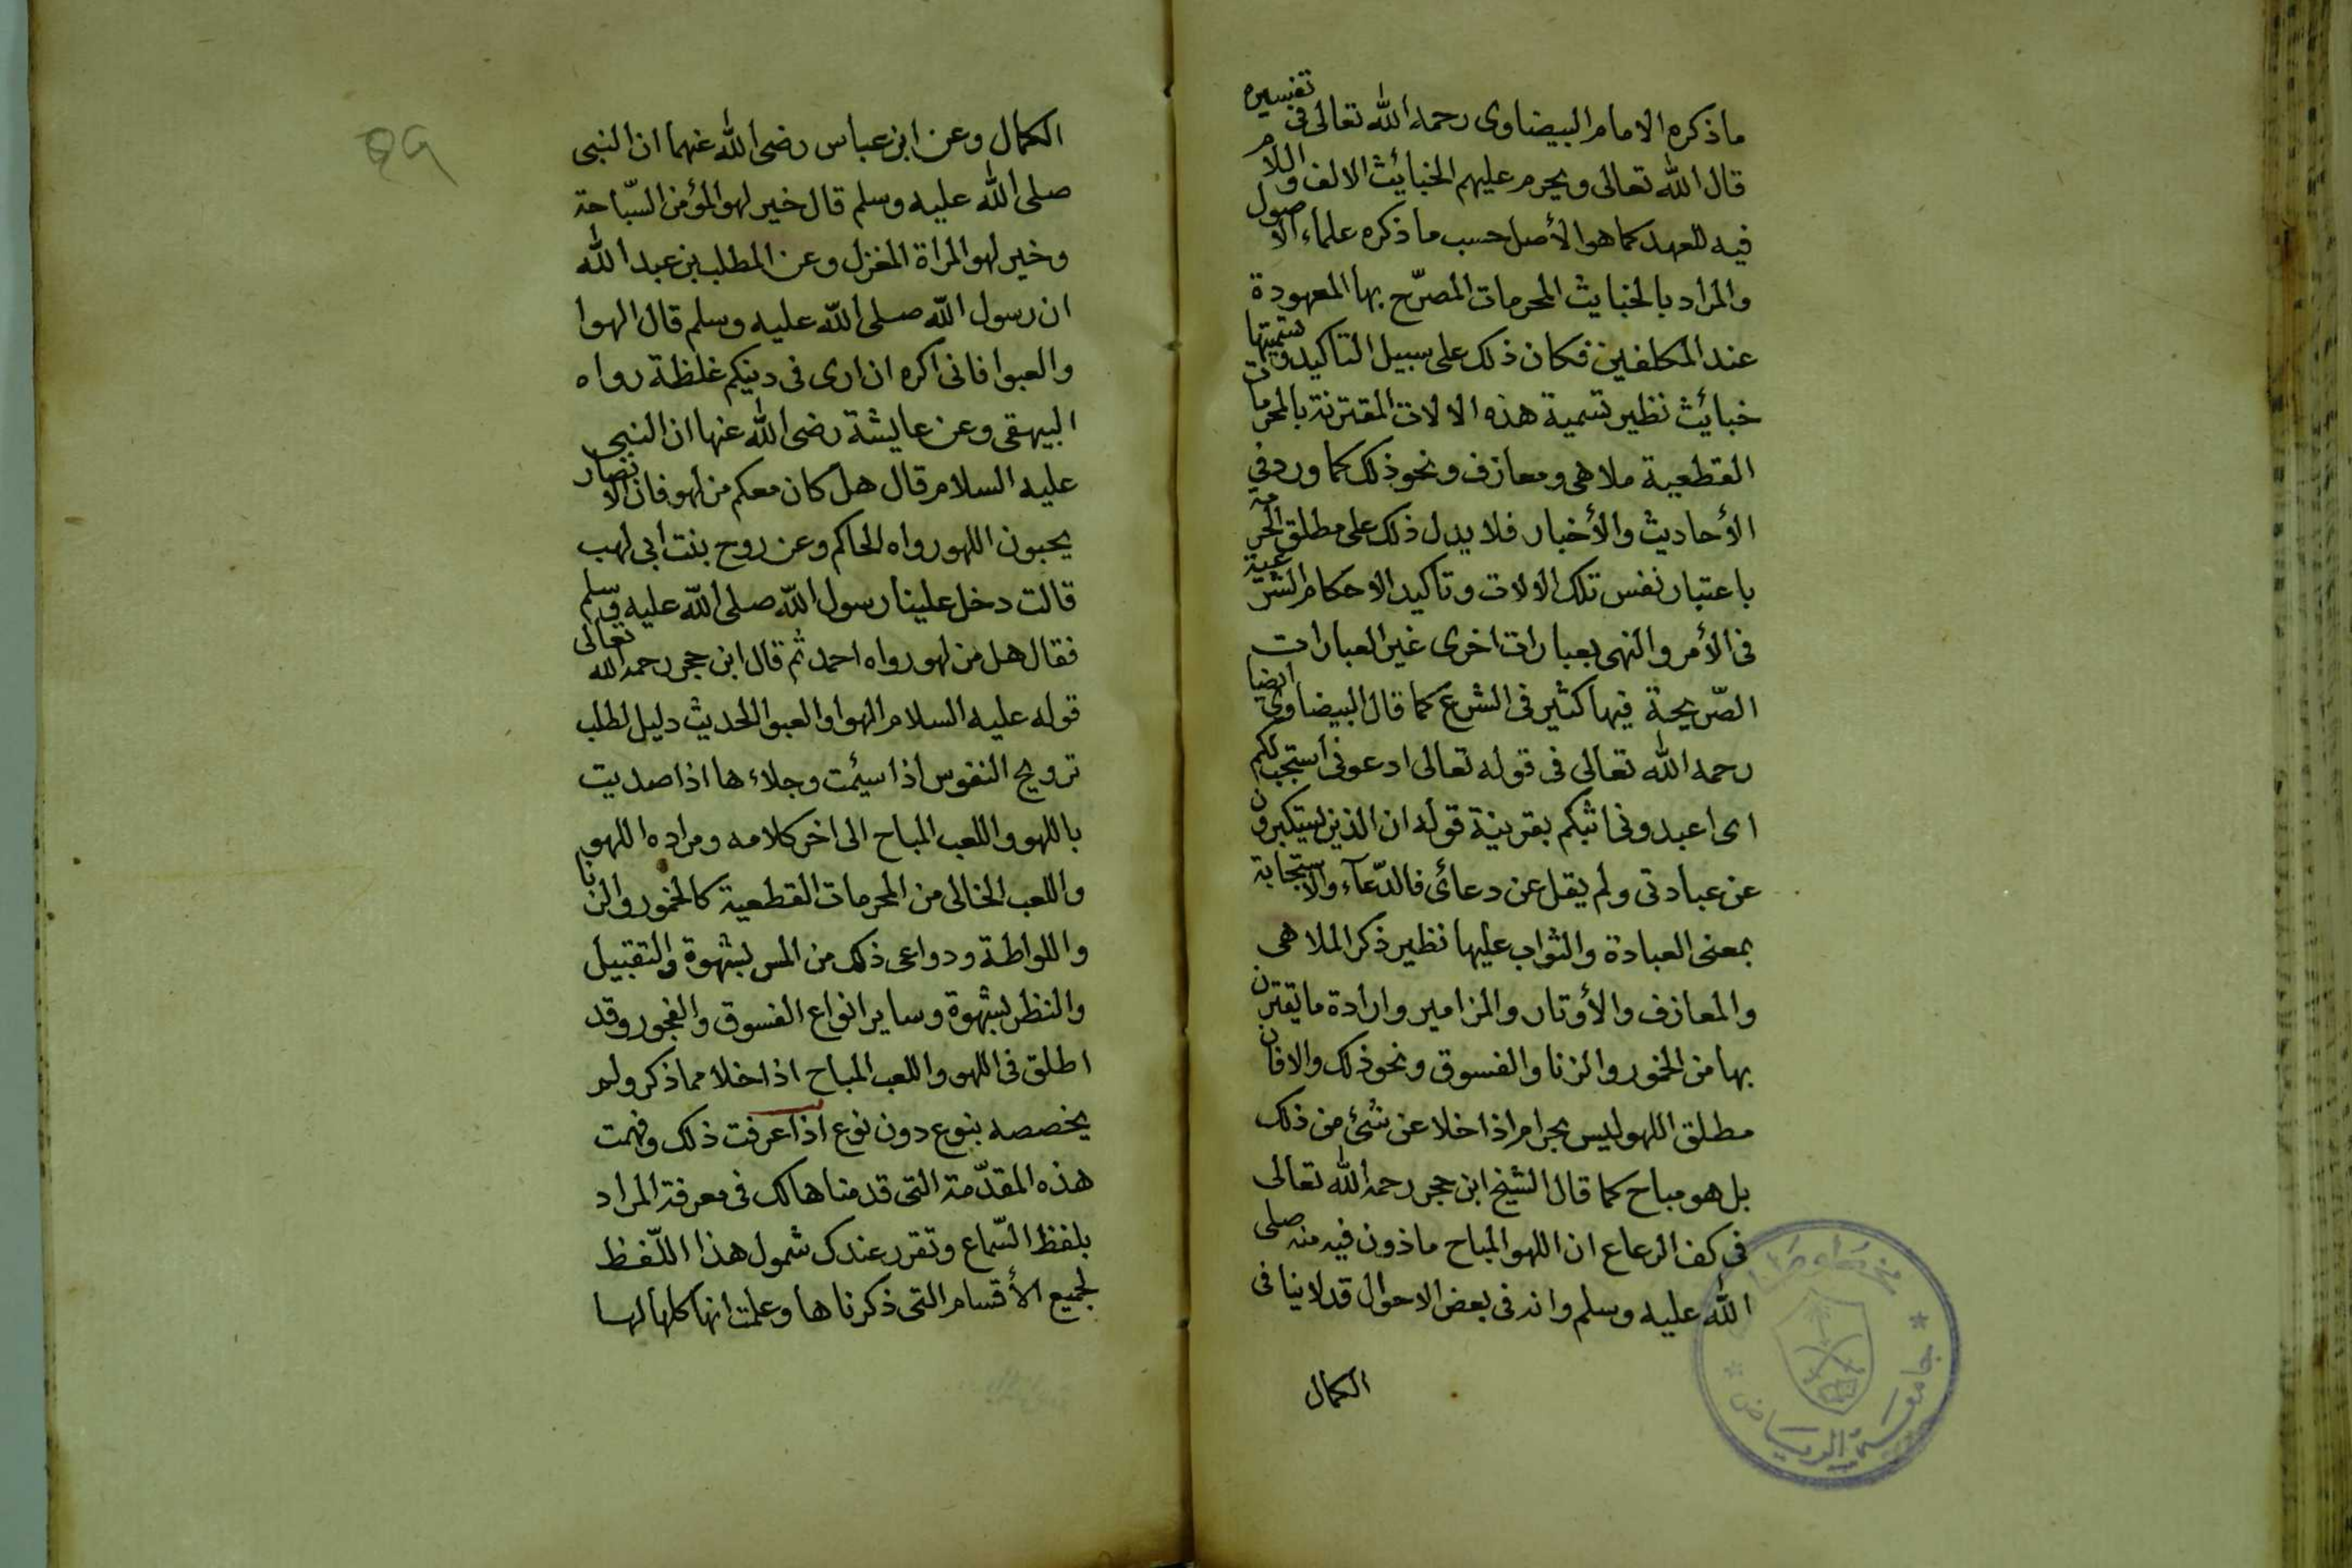 ما ذكره الامام البيضاوى رحمه الله تعالى فى تفسيره
قال الله تعالى ويحرم عليهم الخبائث الالف واللام
فيه للعهد كما هو الأصل حسب ما ذكره علماء الاصول
والمراد بالخبايث المحرمات المصرّح بها المعهودة
عند المكلفين فكان ذلك على سبيل التاكيد وتسميتها
خبائث نظير تسمية هذه الالات المقترنة بالمحرمات
القطعية ملاهى ومعازف ونحو ذلك كما ورد فى
الأحاديث والأخبار فلا يدل ذلك على مطلق الحرمة
باعتبار نفس تلك الالات وتاكيد الاحكام الشرعية
فى الأمر والنهى بعبارات اخرى غير العبارات
الصّريحة فيها كثير فى الشرع كما قال البيضاوى ايضا
رحمه الله تعالى فى قوله تعالى ادعونى أستجب لكم
اى اعبدونى اثبكم بقرينة قوله ان الذين يستكبرون
عن عبادتى ولم يقل عن دعائى فالدّعآء والاستجابة
بمعنى العبادة والثواب عليها نظير ذكر الملاهى
والمعازف والأوتار والمزامير وارادة ما يقترن
بها من الخمور والزنا والفسوق ونحو ذلك والا فان
مطلق اللهو ليس بحرام اذا خلا عن شئ من ذلك
بل هو مباح كما قال الشيخ ابن حجر رحمه الله تعالى
فى كف الرعاع ان اللهو المباح ماذون فيه منه صلى
الله عليه وسلم وانه فى بعض الاحوال قد لا ينافى
الكمال
جامعة الرياض
89
الكمال وعن ابن عباس رضى الله عنهما ان النبى
صلى الله عليه وسلم قال خير لهو المؤمن السّباحة
وخير لهو المراة المغزل وعن المطلب بن عبد الله
ان رسول الله صلى الله عليه وسلم قال الهوا
والعبوا فانى اكره ان ارى فى دينكم غلظة رواه
البيهقى وعن عايشة رضى الله عنها ان النبى
عليه السلام قال هل كان معكم من لهو فان الانصار
يحبون اللهو رواه الحاكم وعن زوج بنت ابى لهب
قالت دخل علينا رسول الله صلى الله عليه وسلم
فقال هل من لهو رواه احمد ثم قال ابن حجر رحمه الله تعالى
قوله عليه السلام الهوا والعبوا الحديث دليل لطلب
ترويح النفوس اذا سيئمت وجلاءها اذا صديت
باللهو واللعب المباح الى اخر كلامه ومراده اللهو
واللعب الخالى من المحرمات القطعية كالخمور والزنا
واللواطة ودواعى ذلك من المس بشهوة والتقبيل
والنظر بشهوة وساير انواع الفسوق والفجور وقد
اطلق فى اللهو واللعب المباح اذا خلا مما ذكر ولم
يخصصه بنوع دون نوع اذا عرفت ذلك وفهمت
هذه المقدّمة التى قدمناها لك فى معرفة المراد
بلفظ السّماع وتقرر عندك شمول هذا اللّفظ
لجميع الأقسام التى ذكرناها وعلمت انها كلها لها